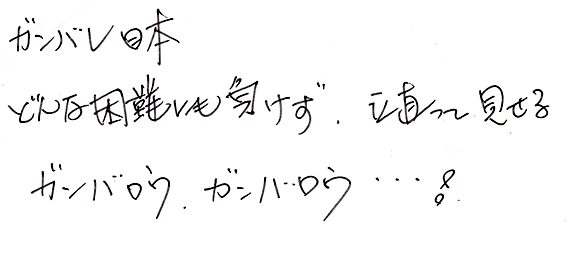 ガンバレ日本
どんな困難にも負けず、立直って見せる
ガンバロウ、ガンバロウ・・・!